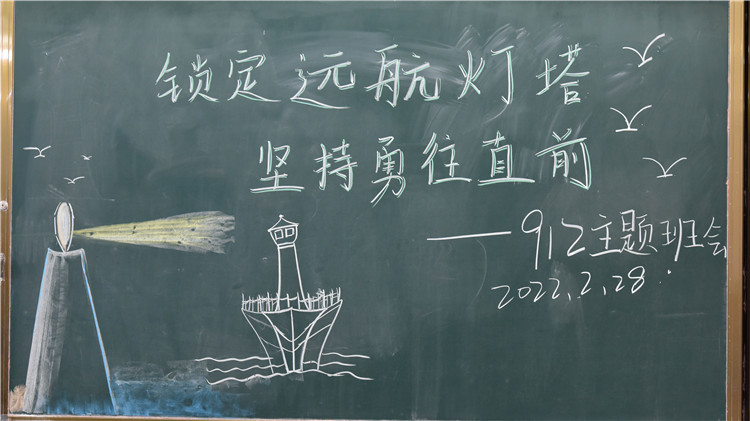 锁定远航灯塔
坚持勇往直前
——912主题班会
2022.2.28.